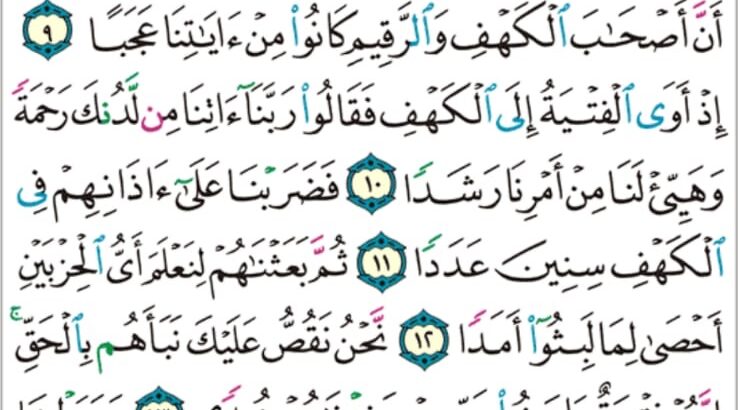 أَنَّ أَصْحَـٰبَ ٱلْكَهْفِ وَٱلرَّقِيمِ كَانُوا۟ مِنْ ءَايَـٰتِنَا عَجَبًا ٩
إِذْ أَوَى ٱلْفِتْيَةُ إِلَى ٱلْكَهْفِ فَقَالُوا۟ رَبَّنَآ ءَاتِنَا مِن لَّدُنكَ رَحْمَةً
وَهَيِّئْ لَنَا مِنْ أَمْرِنَا رَشَدًا ١٠ فَضَرَبْنَا عَلَىٰٓ ءَاذَانِهِمْ فِى
ٱلْكَهْفِ سِنِينَ عَدَدًا ١١ ثُمَّ بَعَثْنَـٰهُمْ لِنَعْلَمَ أَىُّ ٱلْحِزْبَيْنِ
أَحْصَىٰ لِمَا لَبِثُوٓا۟ أَمَدًا ١٢ نَّحْنُ نَقُصُّ عَلَيْكَ نَبَأَهُم بِٱلْحَقِّ ۚ